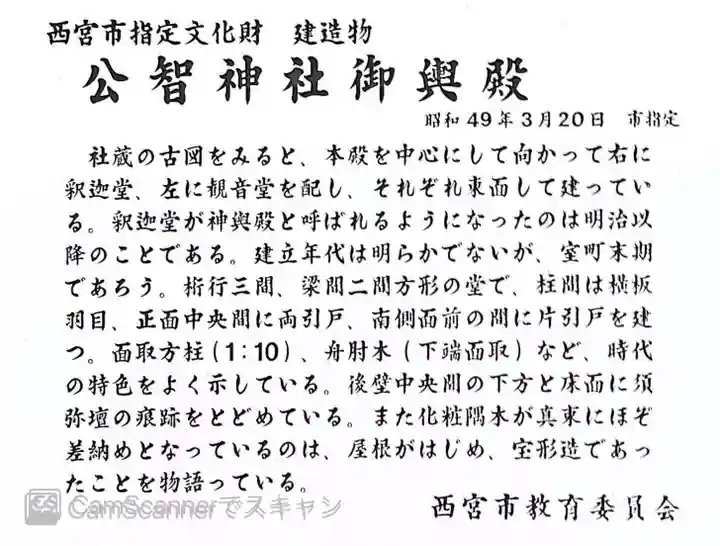 西宮市指定文化財　建造物
公智神社御輿殿
昭和49年3月20日　市指定
　社蔵の古図をみると、本殿を中心にして向かって右に
釈迦堂、左に観音堂を配し、それぞれ東面して建ってい
る。釈迦堂が神輿殿と呼ばれるようになったのは明治以
降のことである。建立年代は明らかでないが、室町末期
であろう。桁行三間、梁間二間方形の堂で、柱間は横板
羽目、正面中央間に両引戸、南側面前の間に片引戸を建
つ。面取方柱(1:10)、舟肘木(下端面取)など、時代
の特色をよく示している。後壁中央間の下方と床面に須
弥壇の痕跡をとどめている。また化粧隅木が真束にほぞ
差納めとなっているのは、屋根がはじめ、宝形造であっ
たことを物語っている。
西宮市教育委員会
CS CamScannerでスキャン